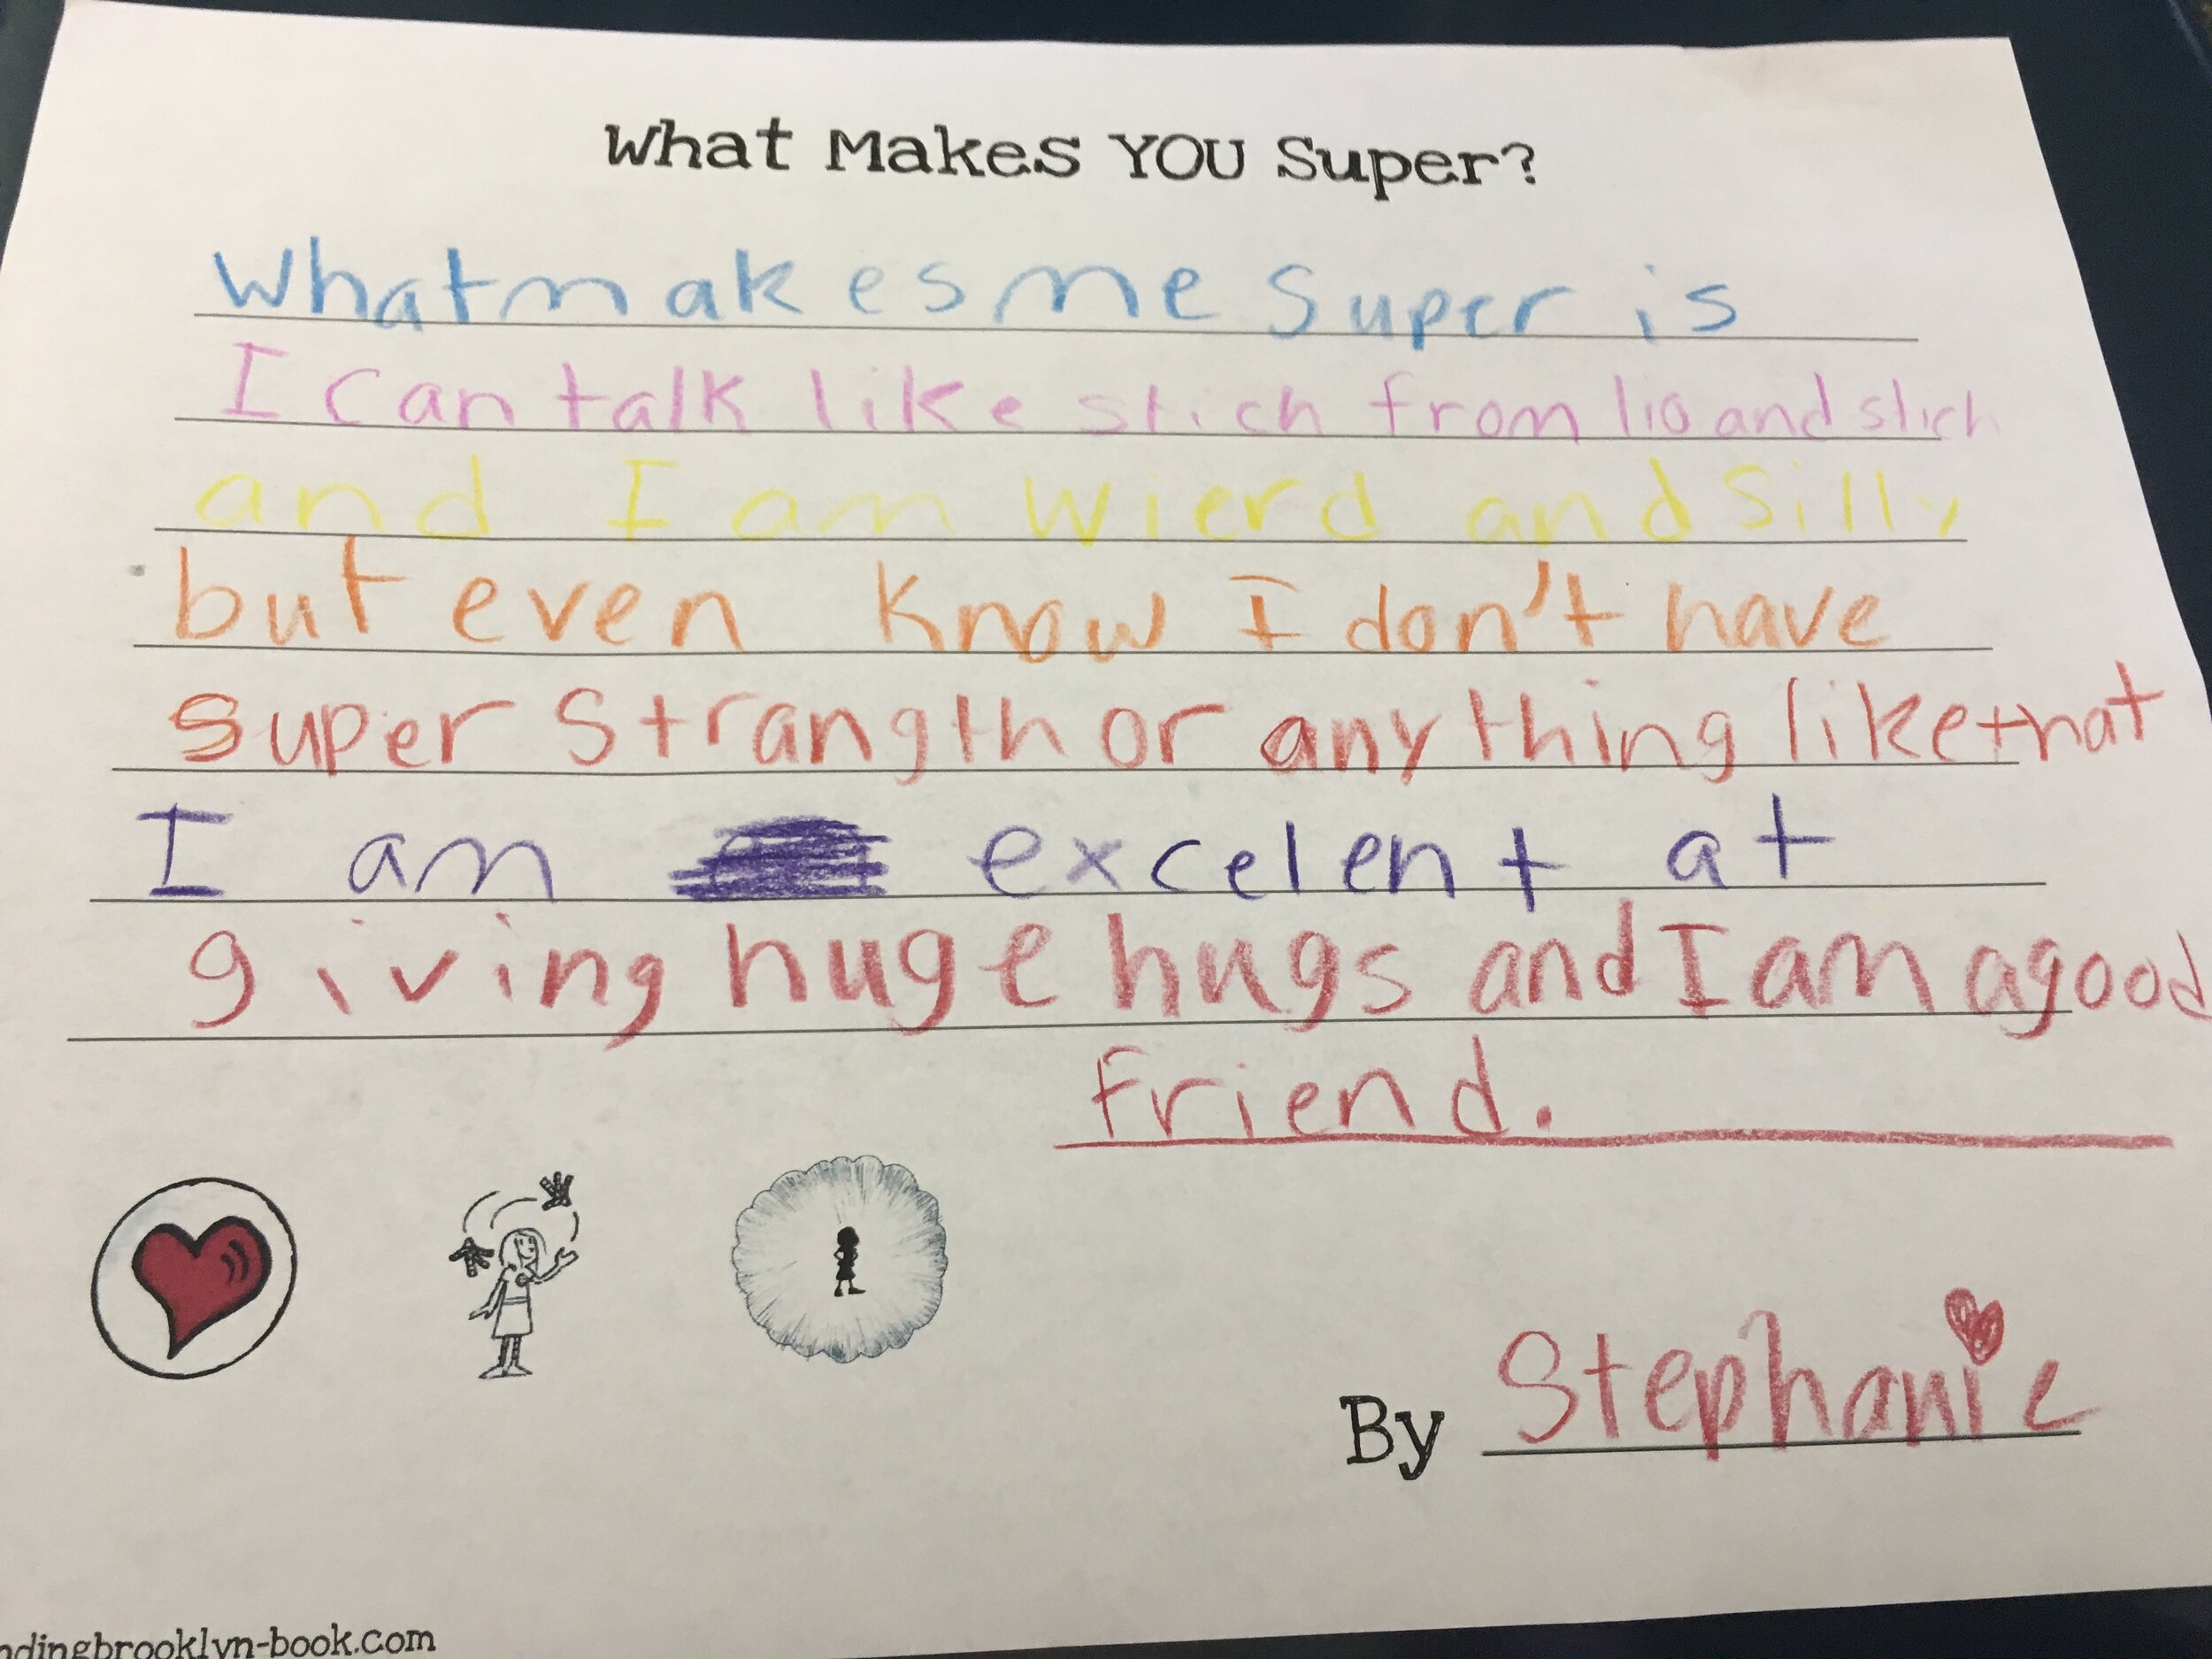 What Makes YOU Super?
What makes me super is
I can talk like stich from lio and stich
and I am wierd and silly
but even know I don't have
super strangth or anything like that
I am excelent at
giving huge hugs and I am a good
friend.
By Stephanie
ndingbrooklyn-book.com